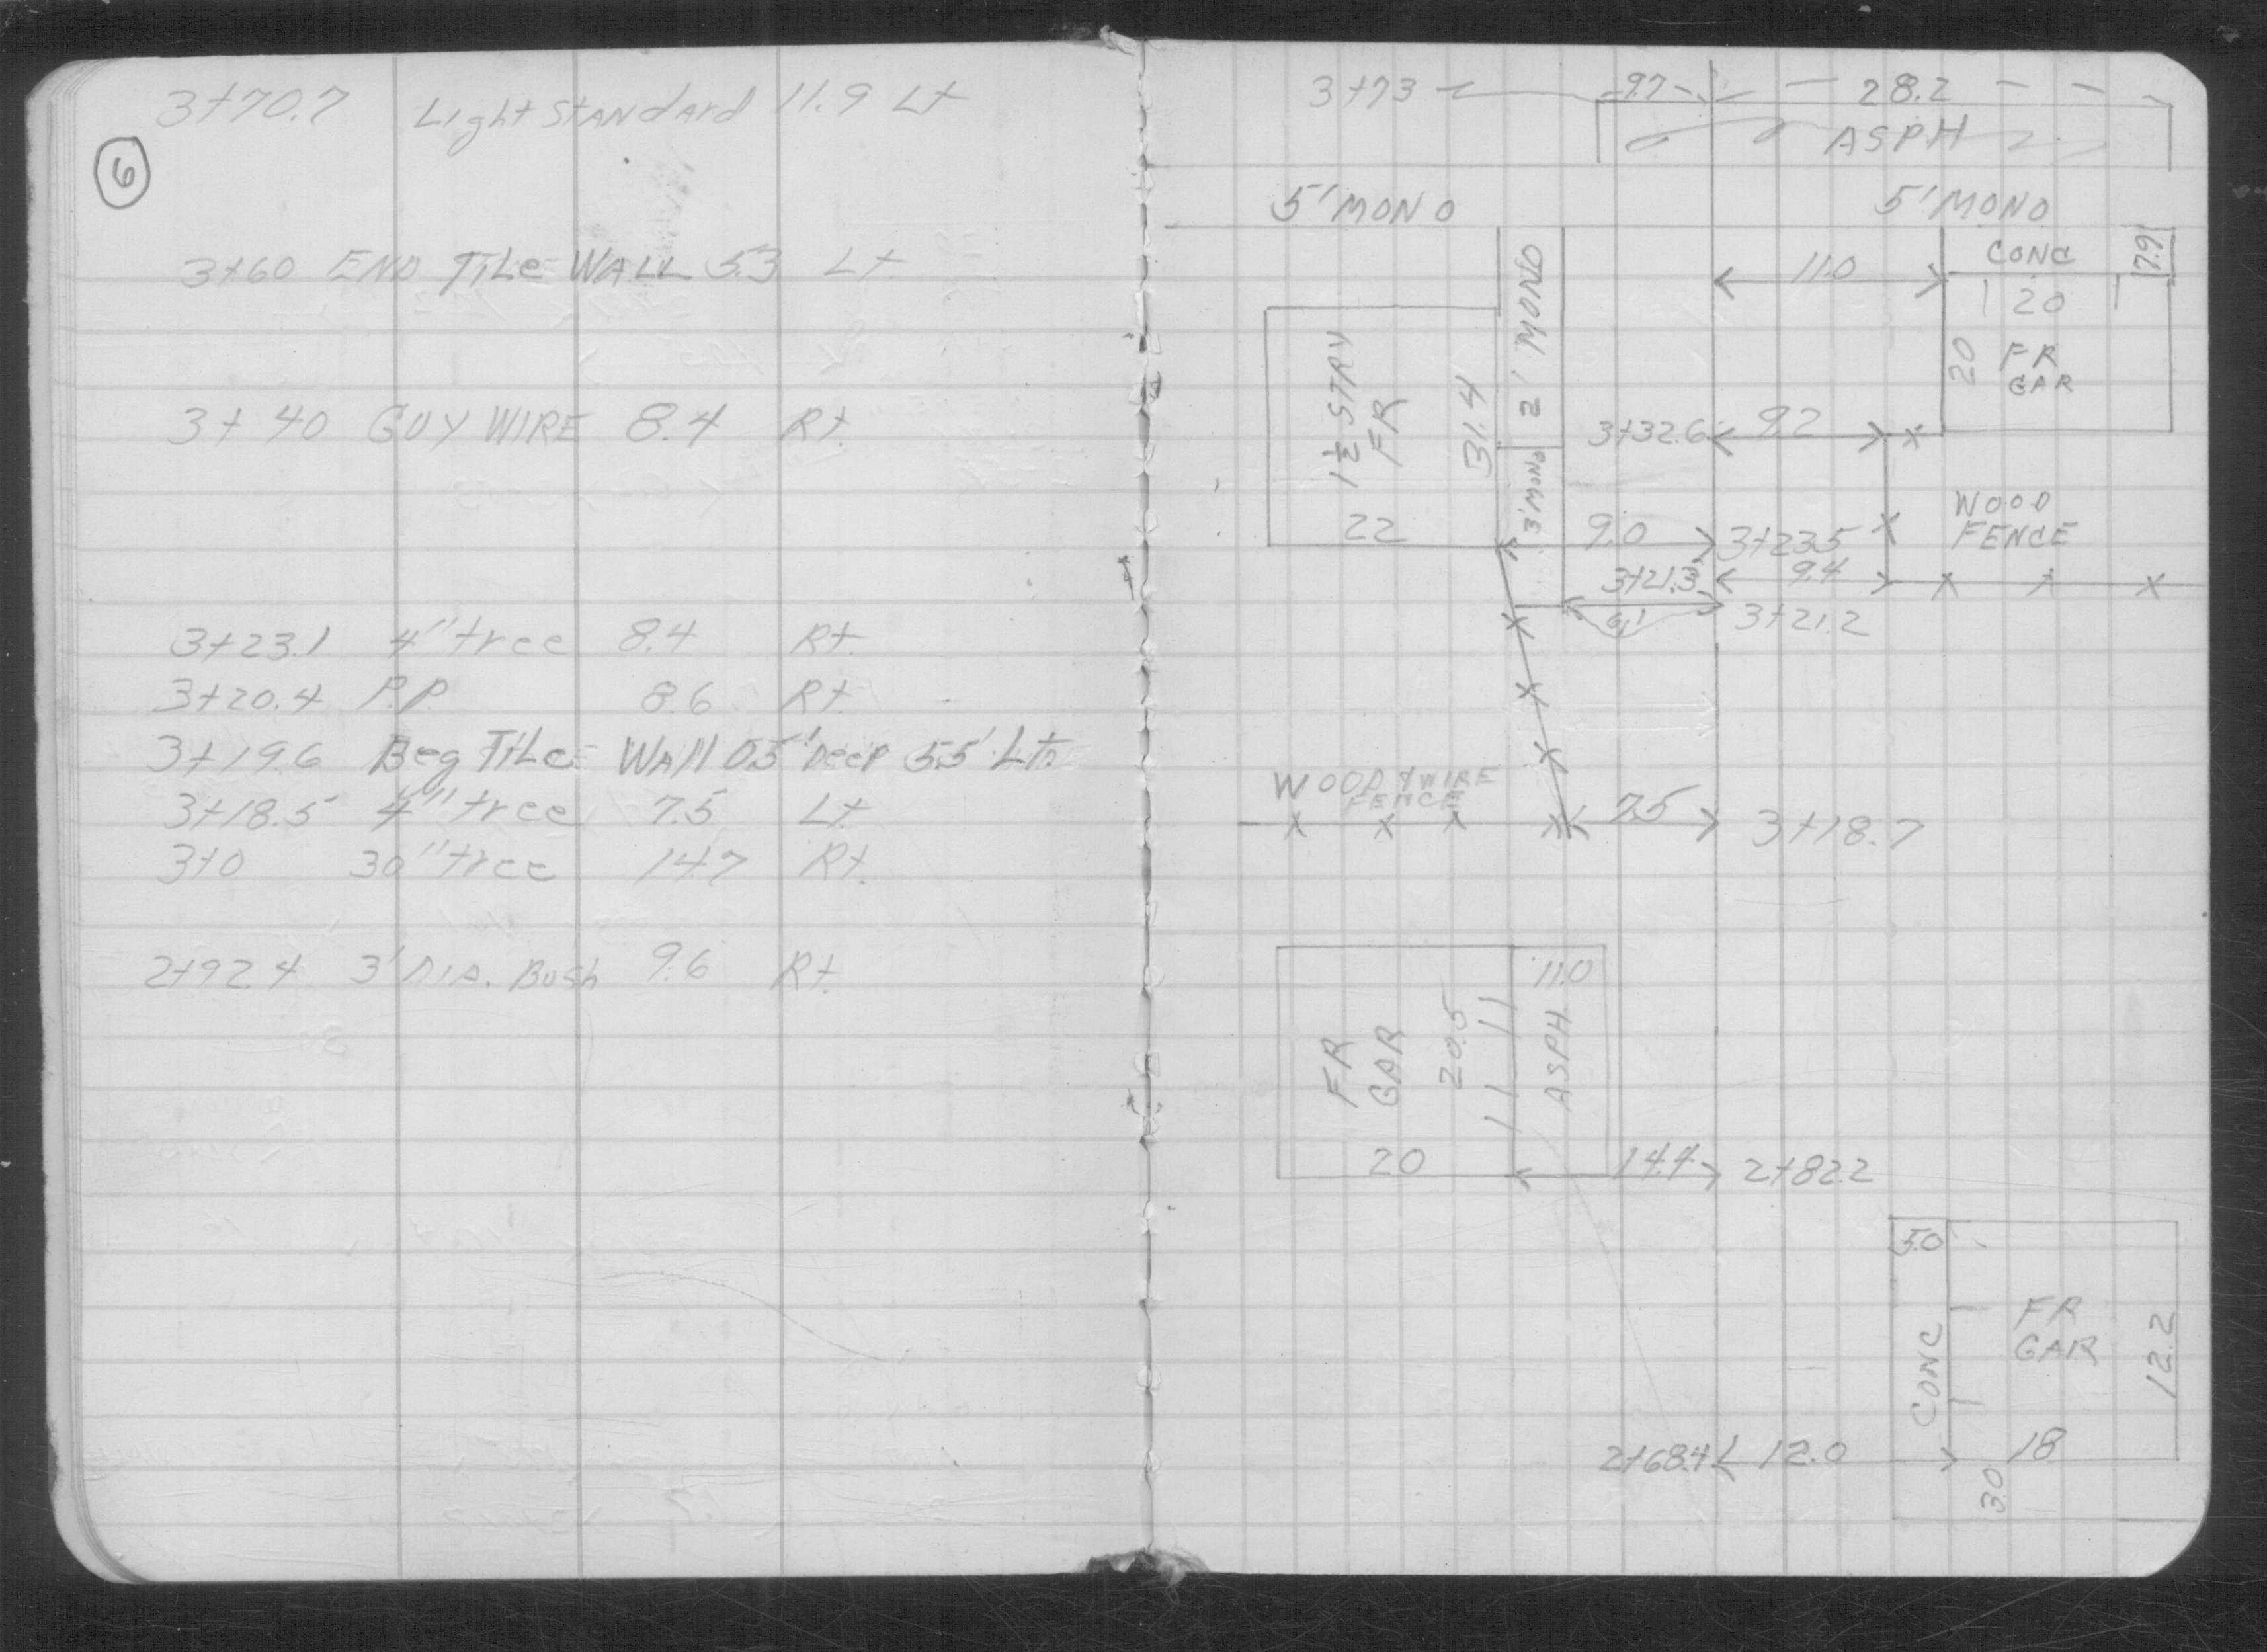 3+70.7 Light Standard 11.9 Lt
6
3+60 END TiLe WALL 5.3 Lt
3+40 GUY WIRE 8.4 Rt.
3+23.1 4" tree 8.4 Rt.
3+20.4 P.P. 8.6 Rt.
3+19.6 Beg TiLe Wall 0.5' Deep 5.5' Lt.
3+18.5 4" tree 7.5 Lt
3+0 30" tree 14.7 Rt.
2+92.4 3' DIA. Bush 9.6 Rt.
3+73 9.7 28.2
ASPH
5' MONO 5' MONO
2' MONO
11.0 CONC 7.9
20
20 FR
GAR
1½ STRY
FR
31.4
22
3+32.6 9.2
3' MONO
WOOD
FENCE
9.0 3+23.5
3+21.3 9.4
3+21.2
WOOD & WIRE
FENCE
7.5 3+18.7
FR
GAR
20.5
20
11.0
ASPH
14.4 2+82.2
5.0
CONC
FR
GAR
12.2
2+68.4 12.0 18
3.0